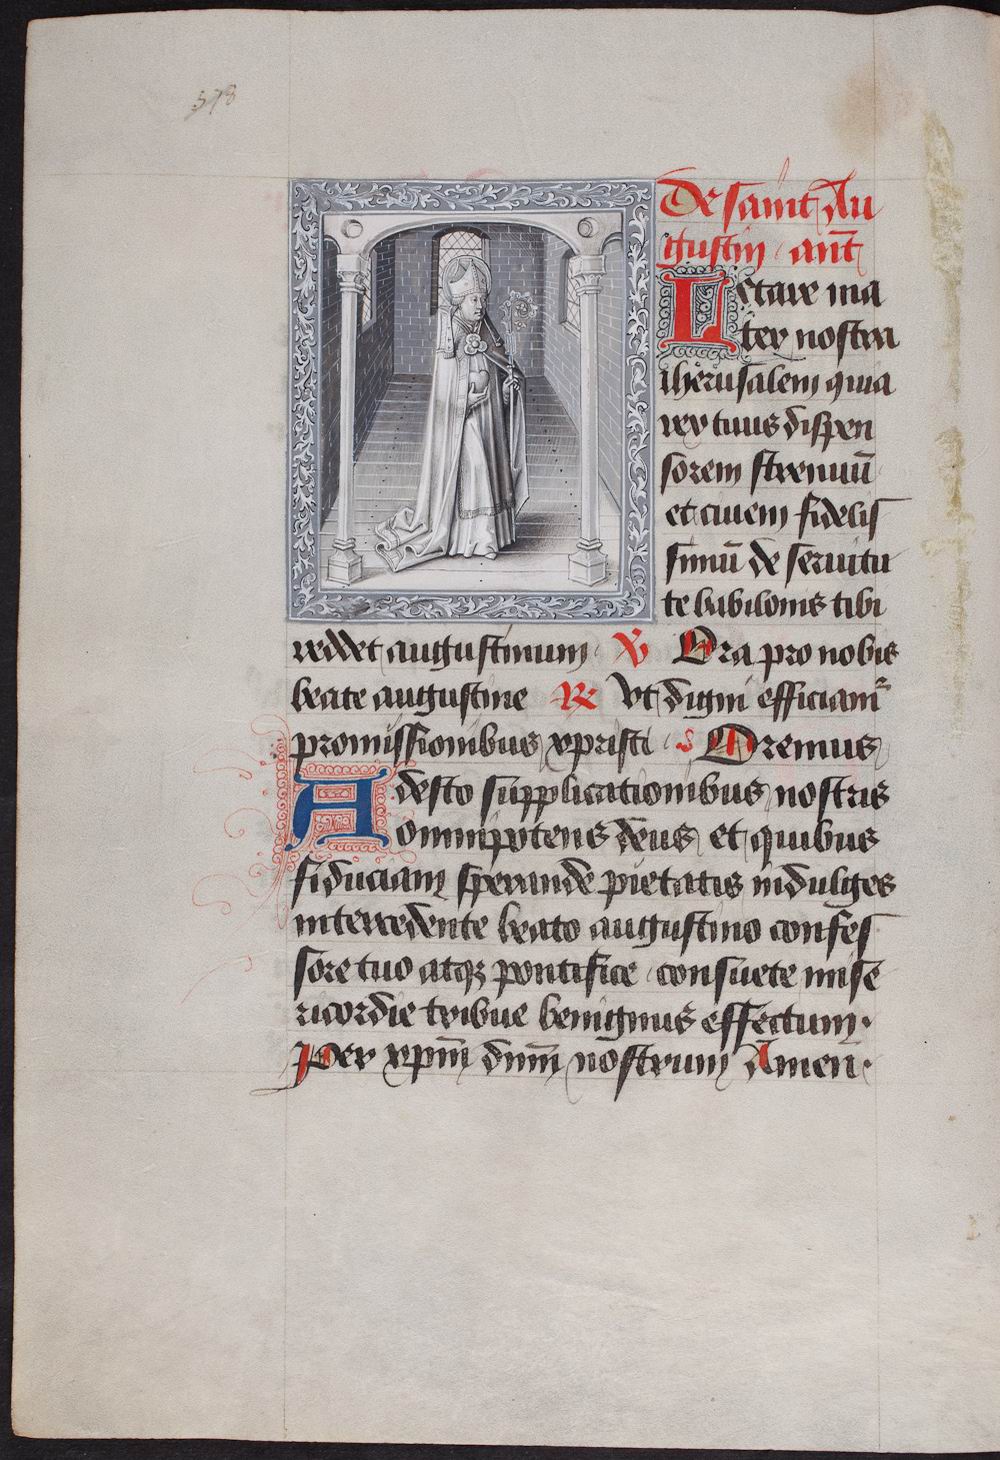 578
De saint Au
gustin · añt
Letare ma
ter nostra
iherusalem quia
rex tuus dispen
sorem strenuū
et ciuem fidelis
simū de seruitu
te babilonis tibi
reddet augustinum · ℣ Ora pro nobis
beate augustine ℟ Vt digni efficiam᷑
promissionibus xpristi · Oremus
Adesto supplicationibus nostris
omnipotens deus et quibus
fiduciam sperande pietatis indulges
intercedente beato augustino confes
sore tuo atqꝫ pontifice · consuete mise
ricordie tribue benignus effectum ·
Per xpm̄ dnm̄ nostrum Amen ·